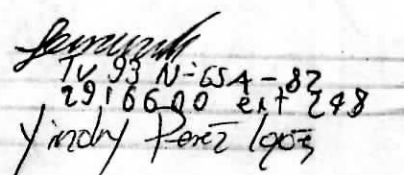 Tv 93 N-65A-82
2916600 ext 248
Yindry Perez